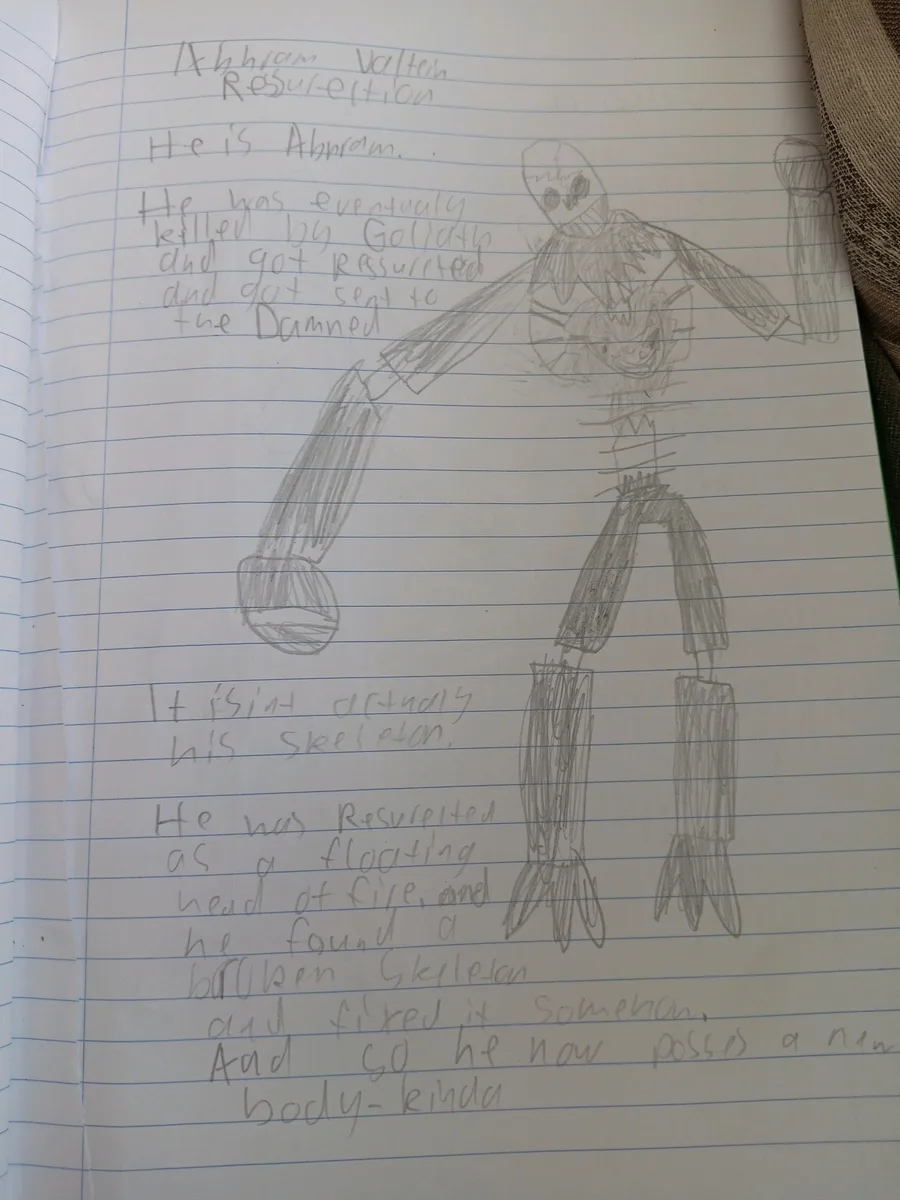 Abhram Valteh
Resurection
He is Abhram.
He was eventualy
killed by Goliath
and got Ressurected
and got sent to
the Damned
It isint actualy
his skeleton.
He was Resurected
as a floating
head of fire, and
he found a
broken Skeleton
and fixed it somehow.
And so he now posses a new
body-kinda